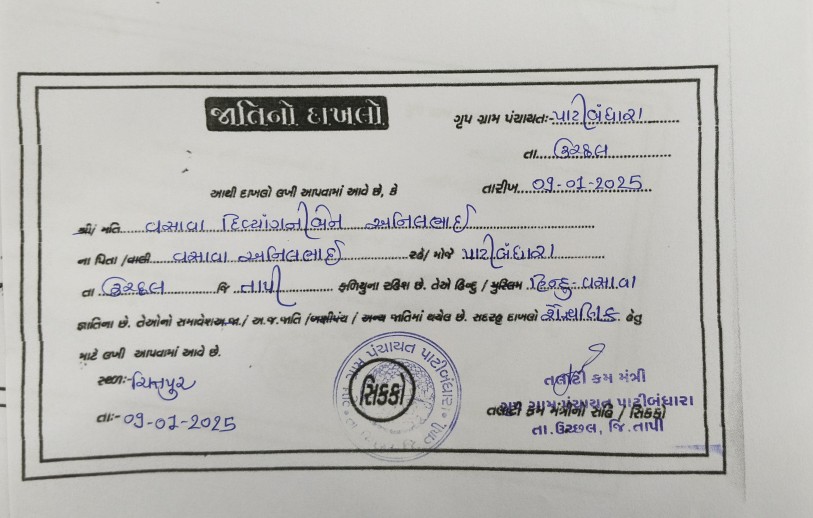 જાતિનો દાખલો
ગૃપ ગ્રામ પંચાયતઃ- પાટીબંધારા
તા. ઉચ્છલ
આથી દાખલો લખી આપવામાં આવે છે, કે
તારીખ 09-01-2025
શ્રી/ મતિ વસાવા દિવ્યાંગનીબેન અનિલભાઈ
ના પિતા /વાલી વસાવા અનિલભાઈ રહે/ મોજે પાટીબંધારા
તા ઉચ્છલ જિ તાપી ફળિયુના રહિશ છે. તેએ હિન્દુ / મુસ્લિમ હિન્દુ-વસાવા
જ્ઞાતિના છે. તેઓનો સમાવેશ અ.જા./ અ.જ.જાતિ /બક્ષીપંચ / અન્ય જાતિમાં થયેલ છે. સદરહુ દાખલો શૈક્ષણિક હેતુ
માટે લખી આપવામાં આવે છે.
સ્થળઃ- ચિત્તપુર
તાઃ- 09-01-2025
ગૃપ ગ્રામ પંચાયત પાટીબંધારા
સિક્કો
તલાટી કમ મંત્રી
ગૃપ ગ્રામ પંચાયત પાટીબંધારા
તલાટી કમ મંત્રીની સહિ / સિક્કો
તા. ઉચ્છલ, જિ. તાપી